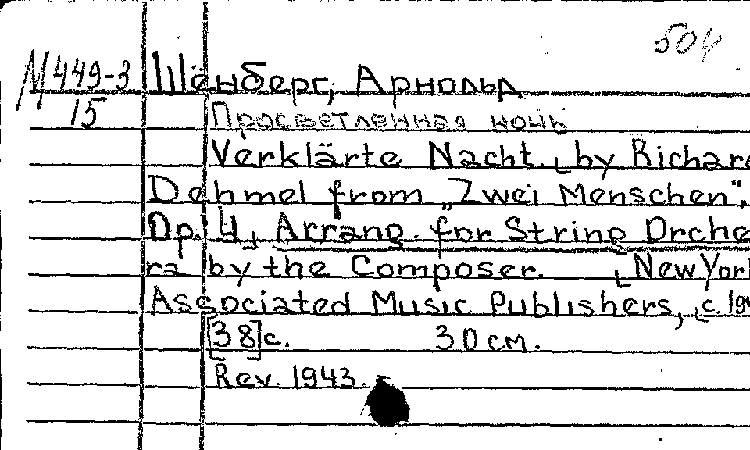 504
М449-3 Шёнберг, Арнольд
15 Просветленная ночь
Verklärte Nacht. by Richard
Dehmel from „Zwei Menschen“.
Op. 4, Arrang. for String Orche
ra by the Composer. [New York
Associated Music Publishers, [c. 19
[38]с. 30 см.
Rev. 1943.